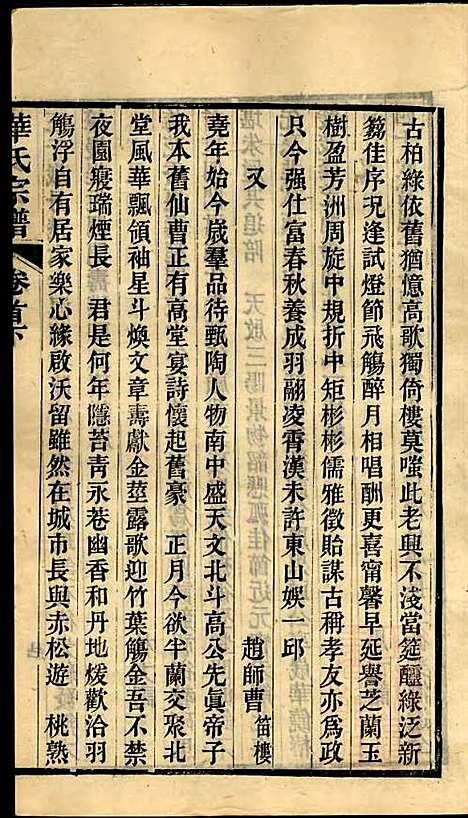 古柏綠依舊猶憶高歌獨倚樓莫嗤此老興不淺當筵釃綠泛新
篘佳序況逢試燈節飛觴醉月相唱酬更喜甯馨早延譽芝蘭玉
樹盈芳洲周旋中規折中矩彬彬儒雅徵貽謀古稱孝友亦為政
只今强仕富春秋養成羽翮凌霄漢未許東山娛一邱
又 趙師曹 笛樓
堯年始今歲羣品待甄陶人物南中盛天文北斗高公先眞帝子
我本舊仙曹正有高堂宴詩懷起舊豪 正月今欲半蘭交聚北
堂風華飄領袖星斗煥文章壽獻金莖露歌迎竹葉觴金吾不禁
夜園寢瑞煙長 君是何年隱苔青永巷幽香和丹地煖歡洽羽
觴浮自有居家樂心緣啟沃留雖然在城市長與赤松遊 桃熟
華氏宗譜 卷首下